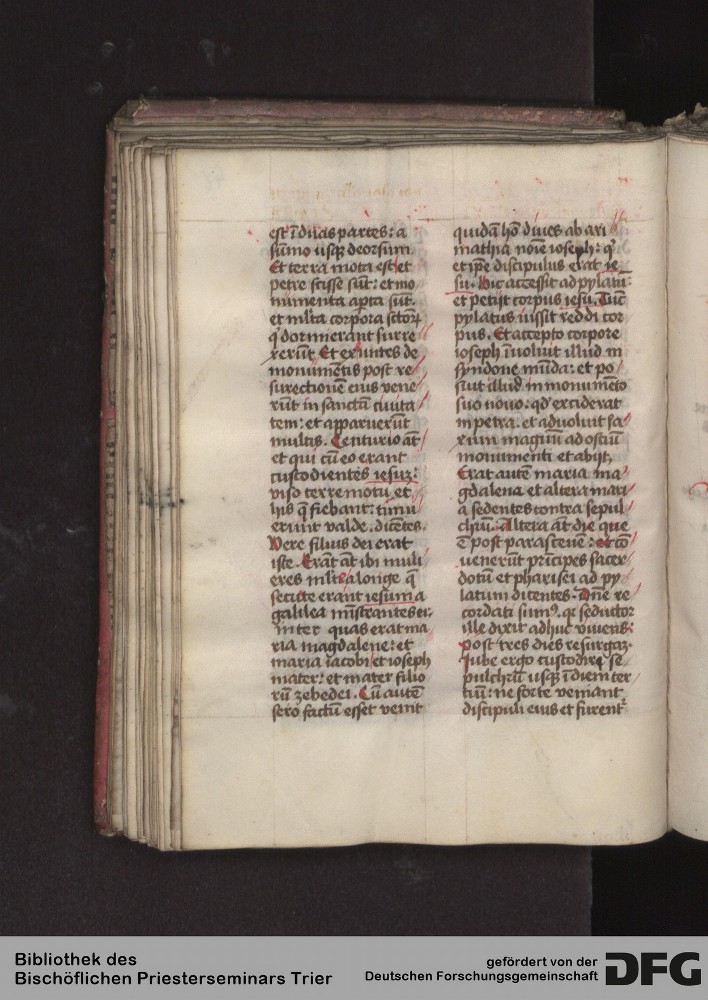 est ī duas partes: a
sūmo usqꝫ deorsum.
Et terra mota est et
petre scisse sūt: et mo
numenta apta sūt.
et mlta corpora sctorꝝ
q̇ dormierant surre
xerūt Et exeuntes de
monumētis post re
surectionē eius vene
rūt in sanctū ciuita
tem: et apparuerūt
multis. Centurio āt
et qui cū eo erant
custodientes iesuꝫ:
viso terremotu et
his q̄ fiebant: timu
erunt valde. dicētes.
Vere filius dei erat
iste. Erāt āt ibi muli
eres mlte a longe q̄
secute erant iesum a
galilea mīstrantes ei:
inter quas erat ma
ria magdalene: et
maria iacobi et ioseph
mater: et mater filio
rū zebedei. Cū autē
sero factū esset venit
quidā hō diues ab ari
mathia noīe ioseph: q̇
et ipē discipulus erat ie
su. Hic accessit ad pylatū:
et petijt corpus iesu. Tūc
pylatus iussit reddi cor
pus. Et accepto corpore
ioseph īuoluit illud in
syndone mūda: et po
suit illud in monumēto
suo nouo: qd̛ exciderat
in petra. et aduoluit sa
xum magnū ad ostiū
monumenti et abijt.
Erat autē maria ma
gdalena et altera mari
a sedentes contra sepul
chrū. Altera āt die que
ē post parasceuē: et cō
uenerūt prīcipes sacer
dotū et pharisei ad py
latum dicentes. Dn̄e re
cordati sumꝰ. qꝛ seductor
ille dixit adhuc viuens:
post tres dies resurgaꝫ.
Iube ergo custodiri se
pulchrū usqꝫ ī diem ter
tiū: ne forte veniant
discipuli eius et furent
Bibliothek des
Bischöflichen Priesterseminars Trier
gefördert von der
Deutschen Forschungsgemeinschaft
DFG